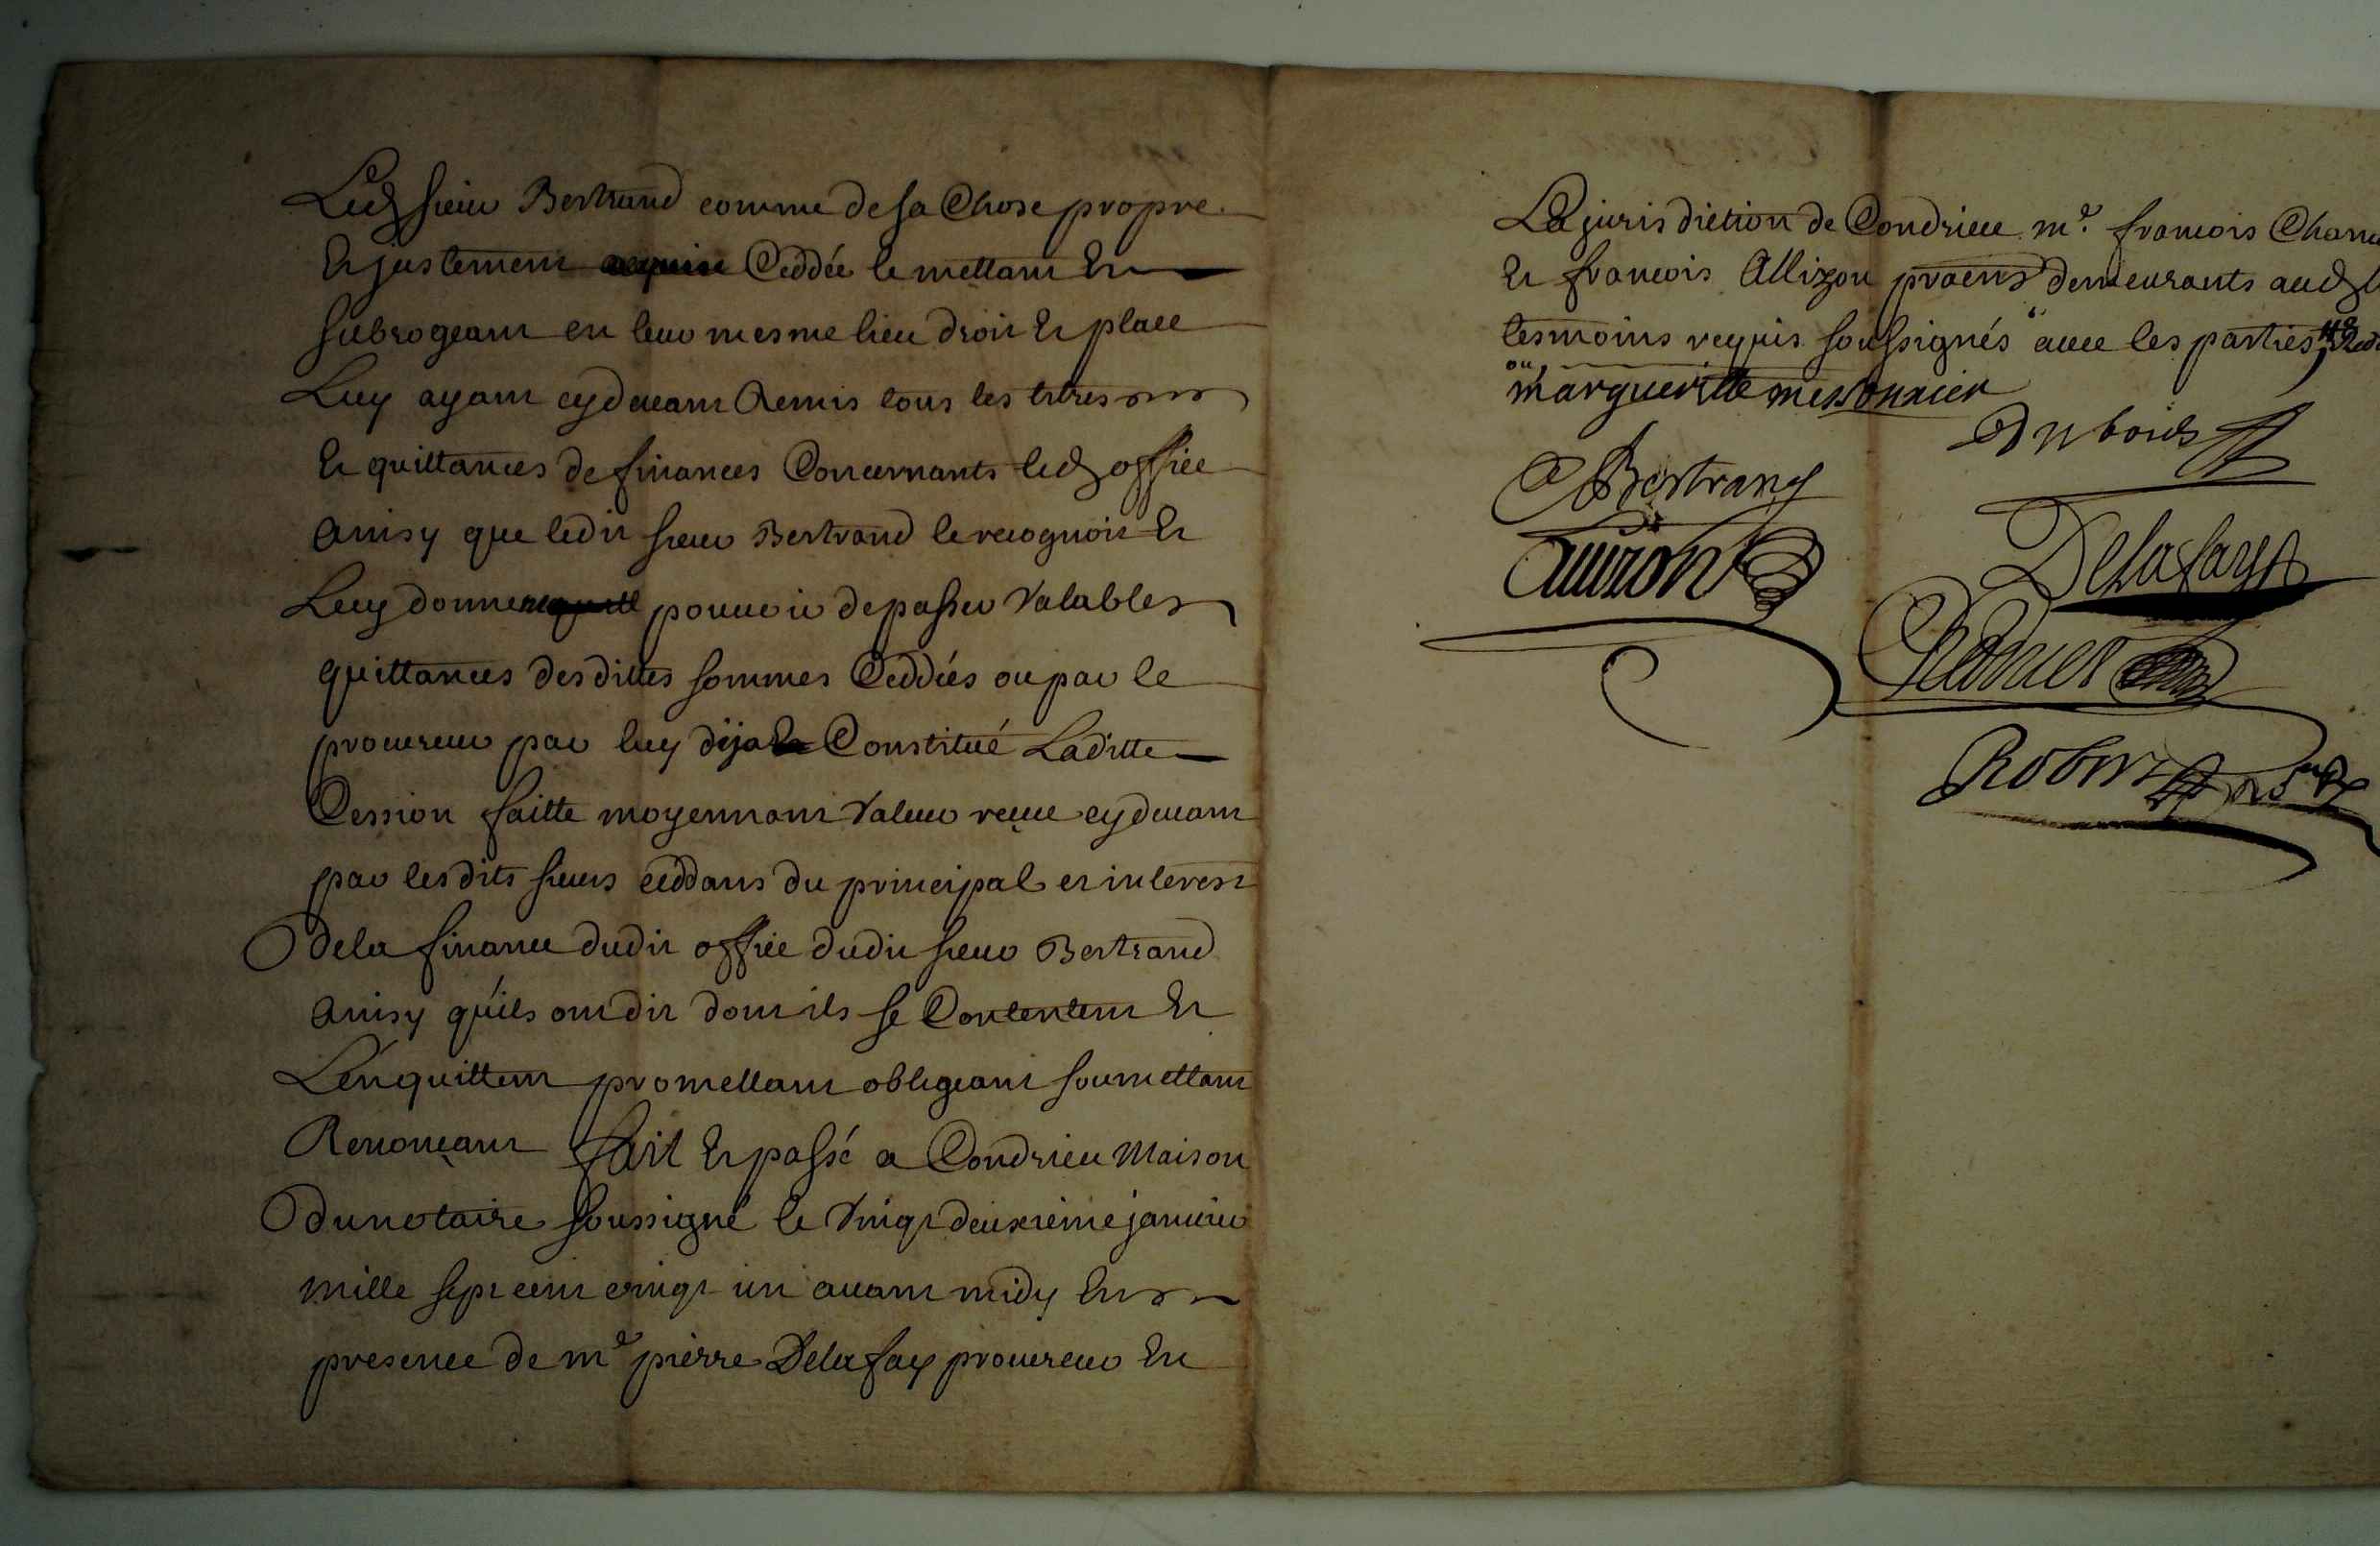 Led sieur Bertrand comme de sa Chose propre
Et justement Ceddée le mettant Et
subrogeant en leur mesme lieu droit Et place
Luy ayant cydevant Remis tous les titres
Et quittances de finances Concernants led office
Ainsy que ledit sieur Bertrand le recognoit Et
Luy donner pouvoir de passer Valables
quittances desdittes sommes Ceddées ou par le
procureur par luy déja Constitué Laditte
Cession faitte moyennant Valeur reçue cydevant
par lesdits sieurs ceddans du principal et interest
de la finance dudit office dudit sieur Bertrand
Ainsy qu'ils ont dit dont ils se Contentent Et
L'enquittent promettant obligeant soumettant
Renonçant fait Et passé a Condrieu Maison
du notaire soussigné le Vingt deuxième janvier
mille sept cent vingt un avant midy En
presence de me pierre Delafay procureur En
La jurisdiction de Condrieu me francois
Et francois Allizon demeurants aud
tesmoins requis soussignés avec les parties
margueritte messonnier
Dubouis
Bertrand
Delafay
Robert